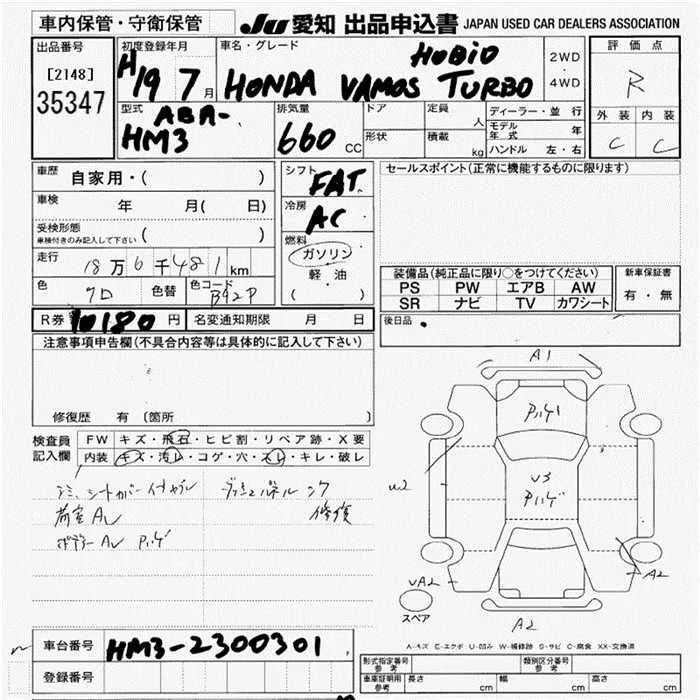 車内保管・守衛保管
JU 愛知 出品申込書 JAPAN USED CAR DEALERS ASSOCIATION
出品番号
[2148]
35347
初度登録年月
H19 7 月
車名・グレード
HONDA VAMOS HOBIO TURBO
2WD
・
4WD
評価点
R
外装 内装
C C
型式
ABA-
HM3
排気量
660 CC
ドア
形状
定員 人
積載 kg
ディーラー・並行
モデル年式 年
ハンドル 左・右
車歴 自家用・( )
車検 年 月( 日)
受検形態
車検付きのみ記入して下さい ( )
走行 18万6千481km
色 色替 色コード B92P
シフト FAT
冷房 AC
燃料
ガソリン
・
軽・油
( )
セールスポイント(正常に機能するものに限ります)
装備品(純正品に限り○をつけてください)
PS PW エアB AW
SR ナビ TV カワシート
新車保証書
有・無
後日品
R券 10180 円 名変通知期限 月 日
注意事項申告欄(不具合内容等は具体的に記入して下さい)
修復歴 有 〔箇所
検査員
記入欄
FW キズ・飛石・ヒビ割・リペア跡・X要
内装 キズ・汚レ・コゲ・穴・スレ・キレ・破レ
A1
U3
A2
UA2
A2
スペア
A-キズ E-エクボ U-凹み W-補修跡 S-サビ C-腐食 XX-交換済
車台番号 HM3-2300301
登録番号
形式指定番号
参考
類別区分番号
参考
車庫証明用
参考
長さ cm 幅 cm 高さ cm